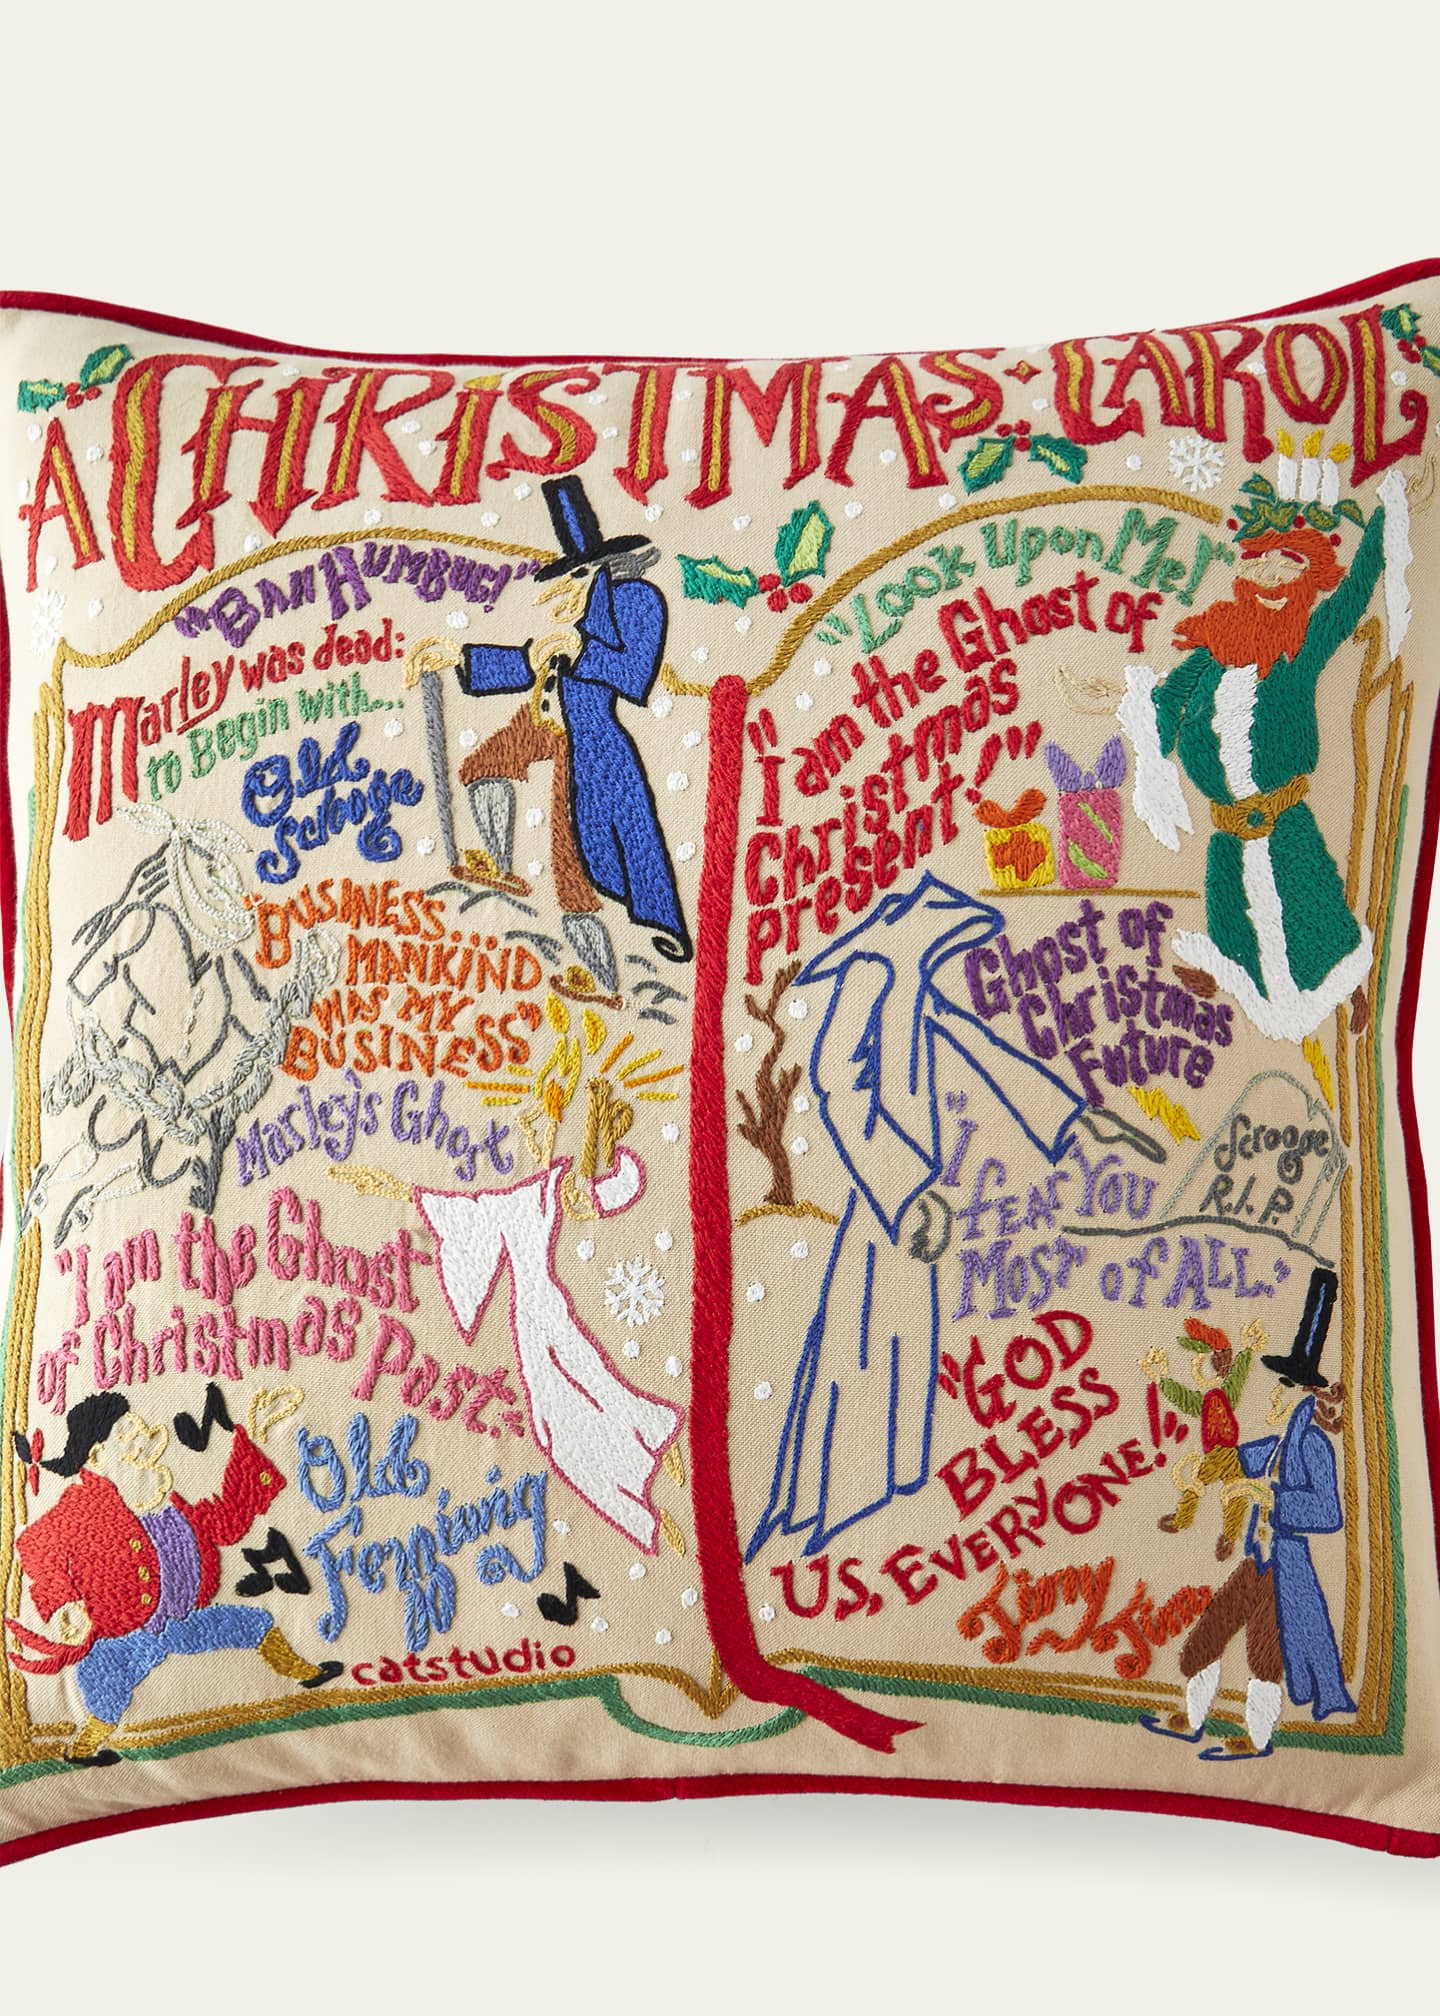 A CHRiSTMAS · CAROL
"BAH HUMBUG!"
Marley was dead:
to Begin with...
Old
Scrooge
"BUSINESS...
MANKIND
WAS MY
BUSINESS"
Marley's Ghost
"I am the Ghost
of Christmas Past."
Old
Fezziwig
catstudio
"Look Upon Me!"
"I am the Ghost of
Christmas
present!"
Ghost of
Christmas
Future
Scrooge
R.I.P.
"I
fear You
Most of ALL."
"GOD
BLESS
US, EVERYONE!"
Tiny
Tim